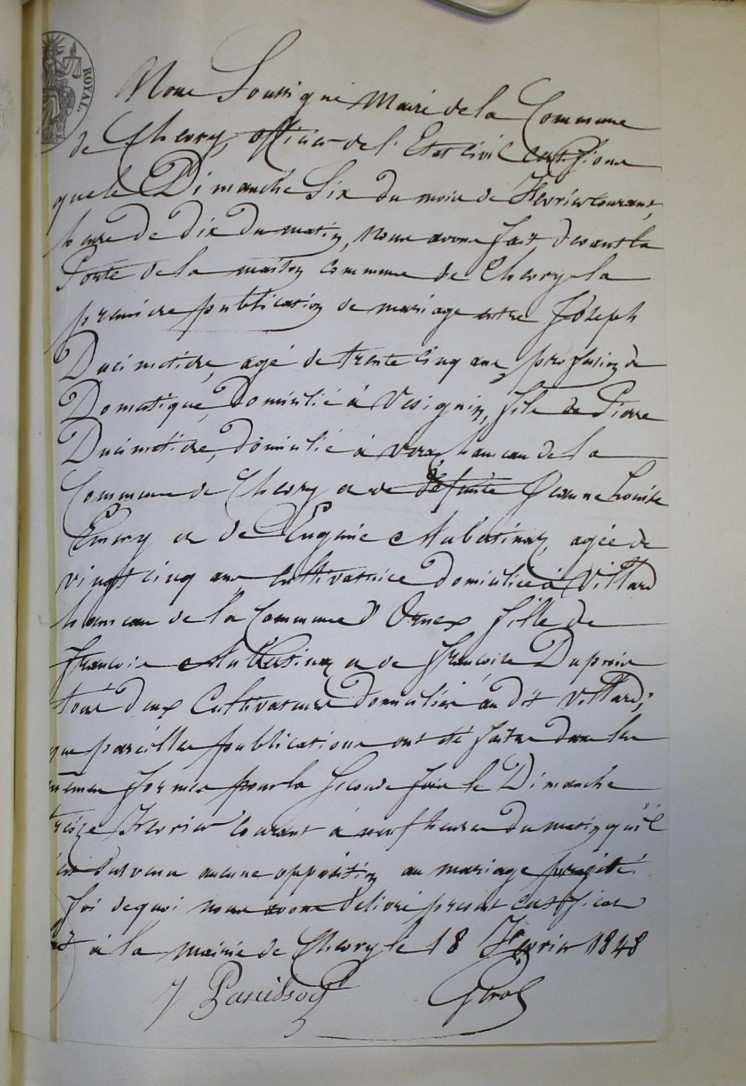 ROYAL.
Nous Soussigné Maire de la Commune
de Chevry, officier de l'Etat civil certifions
que le Dimanche Six du mois de Fevrier courant,
heure de dix du matin, nous avons fait devant la
Porte de la maison commune de Chevry la
première publication de mariage entre Joseph
agé de trente cinq ans, profession de
Domestique, Domicilié à Vesignin, fils de Pierre
domicilié à hameau de la
Commune de Chevry et de défunte Jeanne Louise
Emery et de Eugénie agée de
vingt cinq ans Cultivatrice domiciliée à Villard
hameau de la Commune d'Ornex fille de
François et de Françoise Duproix
tous deux Cultivateurs domiciliés au dit Villard;
que pareilles publications ont été faites dans les
mêmes formes pour la seconde fois le Dimanche
treize Fevrier courant à neuf heures du matin qu'il
survenu aucune opposition au mariage projeté.
foi de quoi nous avons délivré présent certificat
à la mairie de Chevry le 18 Fevrier 1848
J Panissod Girod